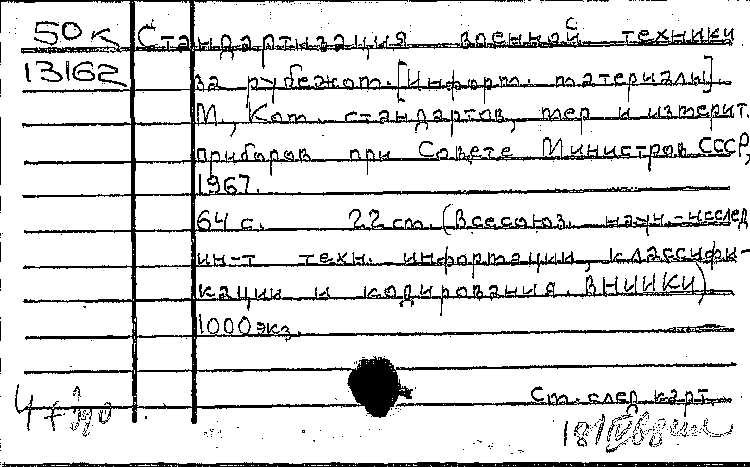 50к Стандартизация военной техники
13162 за рубежом. [Информ. материалы].
М., Ком. стандартов, мер и измерит.
приборов при Совете Министров СССР,
1967.
64 с. 22 см. (Всесоюз. науч.-исслед.
ин-т техн. информации, классифи-
кации и кодирования. ВНИИКИ)
1000 экз.
См. след. карт.